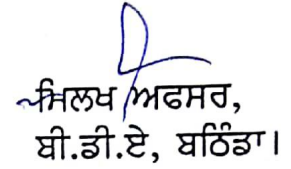 ਮਿਲਖ ਅਫਸਰ,
ਬੀ.ਡੀ.ਏ, ਬਠਿੰਡਾ।